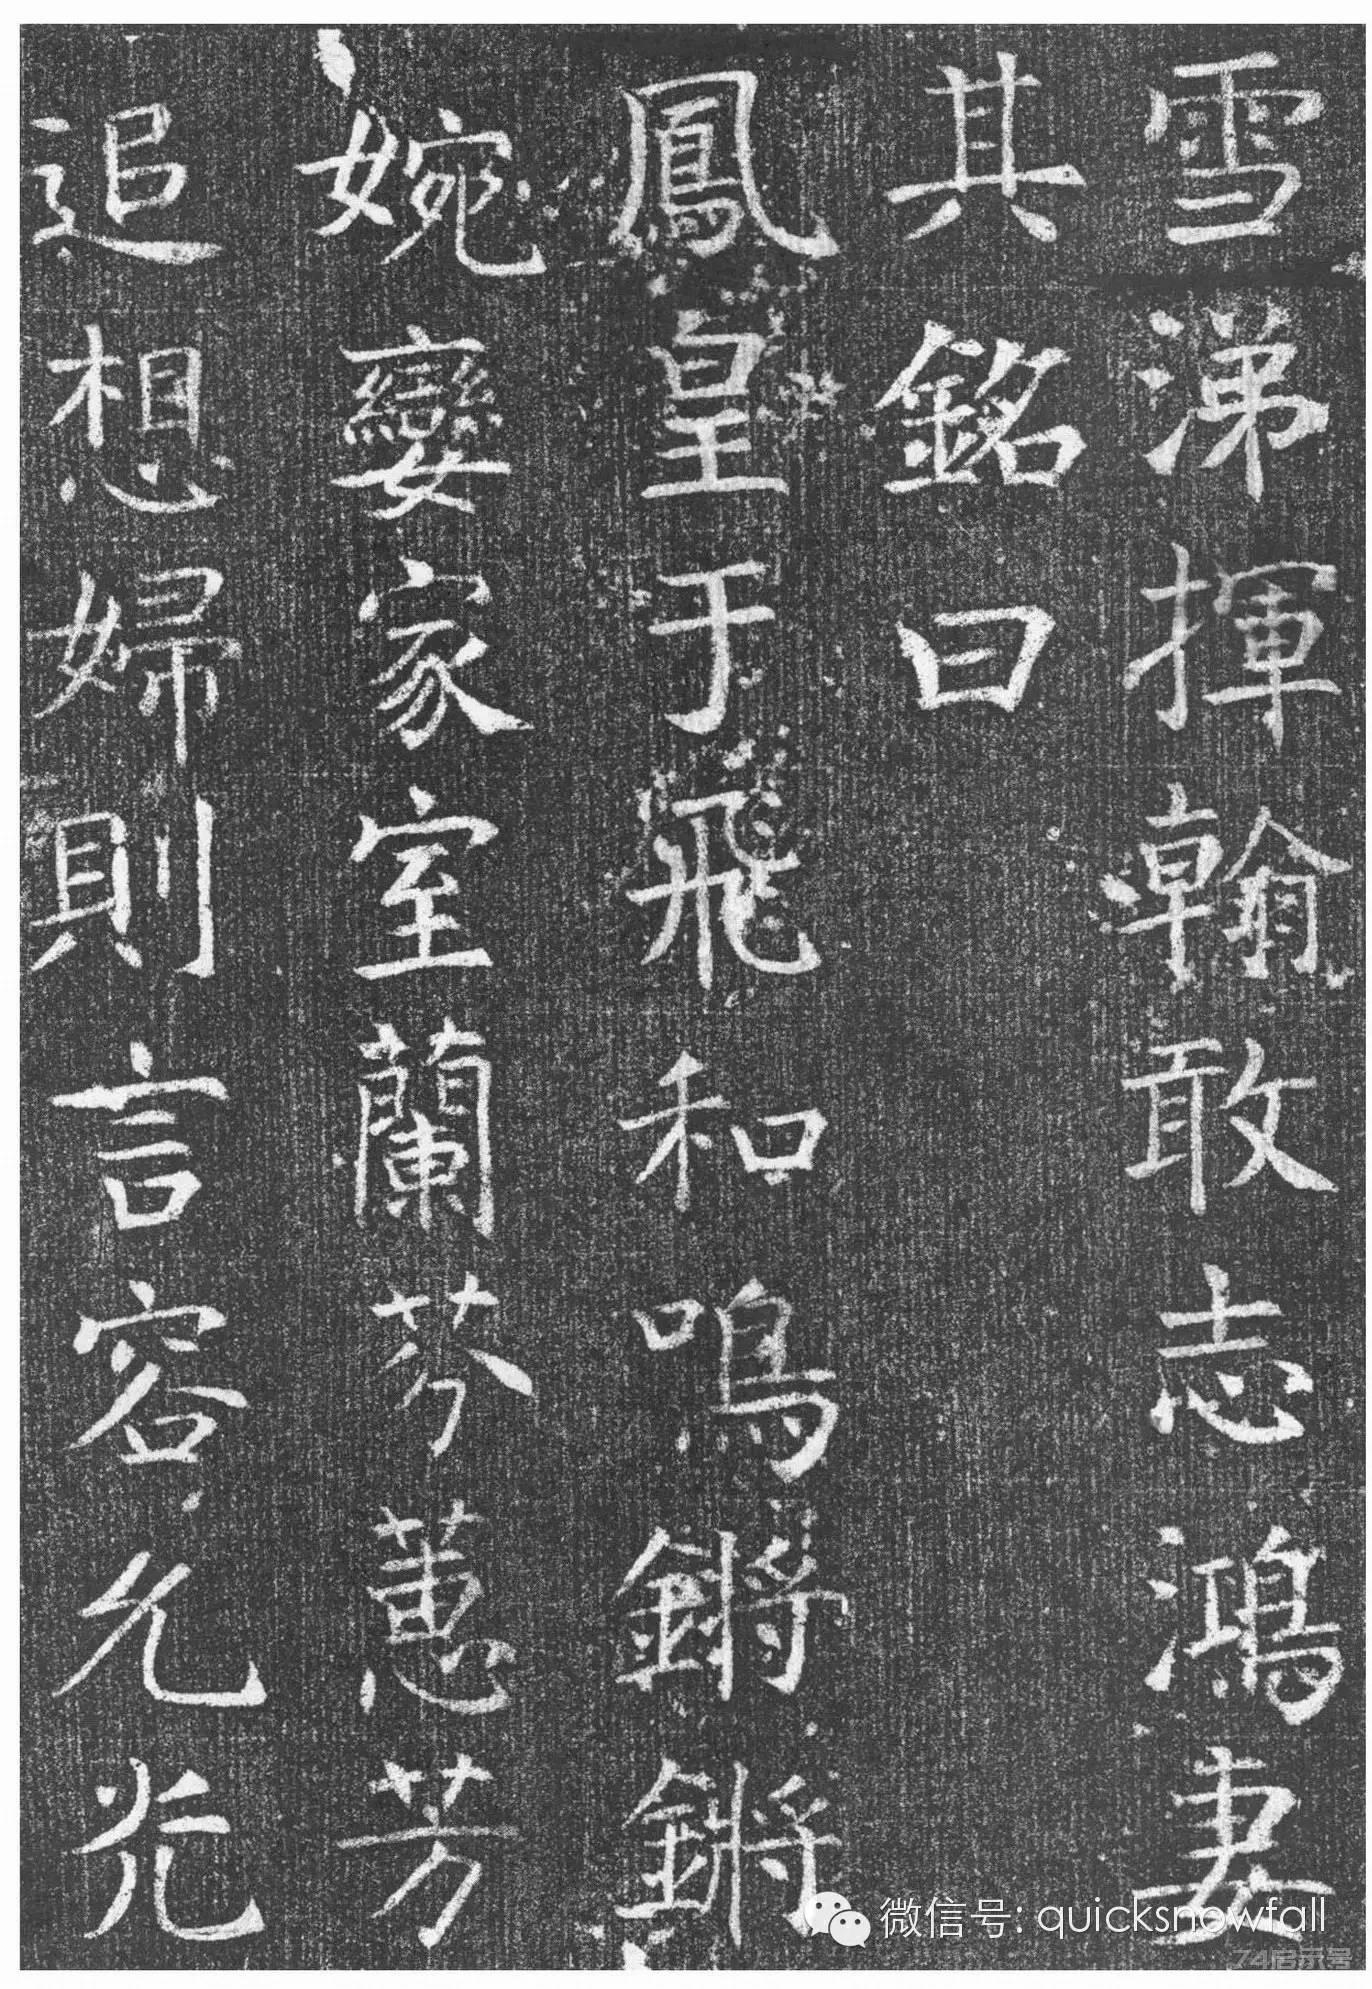 雪涕揮翰敢志鴻妻
其銘曰
鳳皇于飛和鳴鏘鏘
婉孌家室蘭芬蕙芳
追想婦則言容允光
微信号: quicksnowfall
74启示号